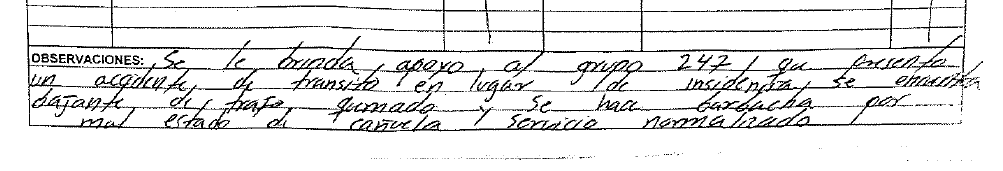 OBSERVACIONES: Se le brinda apoyo al grupo 247, que presenta
un accidente de transito en lugar de insidencia, se encuentra
bajante de trafo qumado y se hace barbacha por
mal estado de cañuela y servicio normalizado